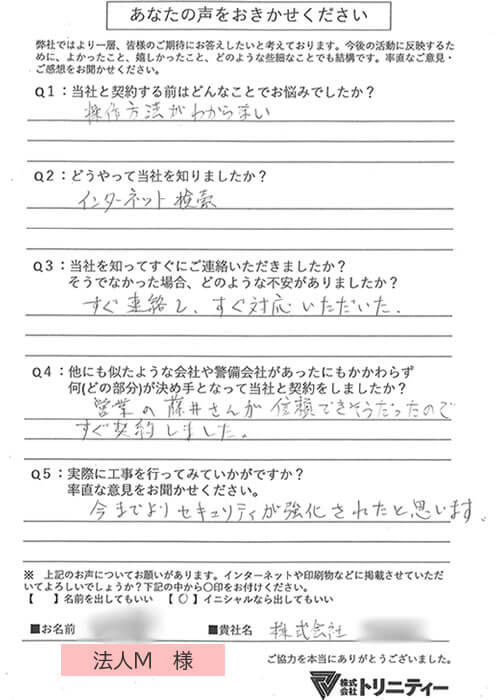 あなたの声をおきかせください
弊社ではより一層、皆様のご期待にお答えしたいと考えております。今後の活動に反映するた
めに、よかったこと、嬉しかったこと、どのような些細なことでも結構です。率直なご意見・
ご感想をお聞かせください。
Q1：当社と契約する前はどんなことでお悩みでしたか？
操作方法がわからない
Q2：どうやって当社を知りましたか？
インターネット検索
Q3：当社を知ってすぐにご連絡いただきましたか？
そうでなかった場合、どのような不安がありましたか？
すぐ連絡し、すぐ対応いただいた.
Q4：他にも似たような会社や警備会社があったにもかかわらず
何(どの部分)が決め手となって当社と契約をしましたか？
営業の藤井さんが信頼できそうだったので
すぐ契約しました。
Q5：実際に工事を行ってみていかがですか？
率直な意見をお聞かせください。
今までよりセキュリティが強化されたと思います.
※ 上記のお声についてお願いがあります。インターネットや印刷物などに掲載させていただ
いてよろしいでしょうか？下記の中から〇印をお付けください。
【　】名前を出してもいい 【〇】イニシャルなら出してもいい
■お名前 ■貴社名 株式会社
法人M 様
ご協力を本当にありがとうございました。
株式会社トリニティー